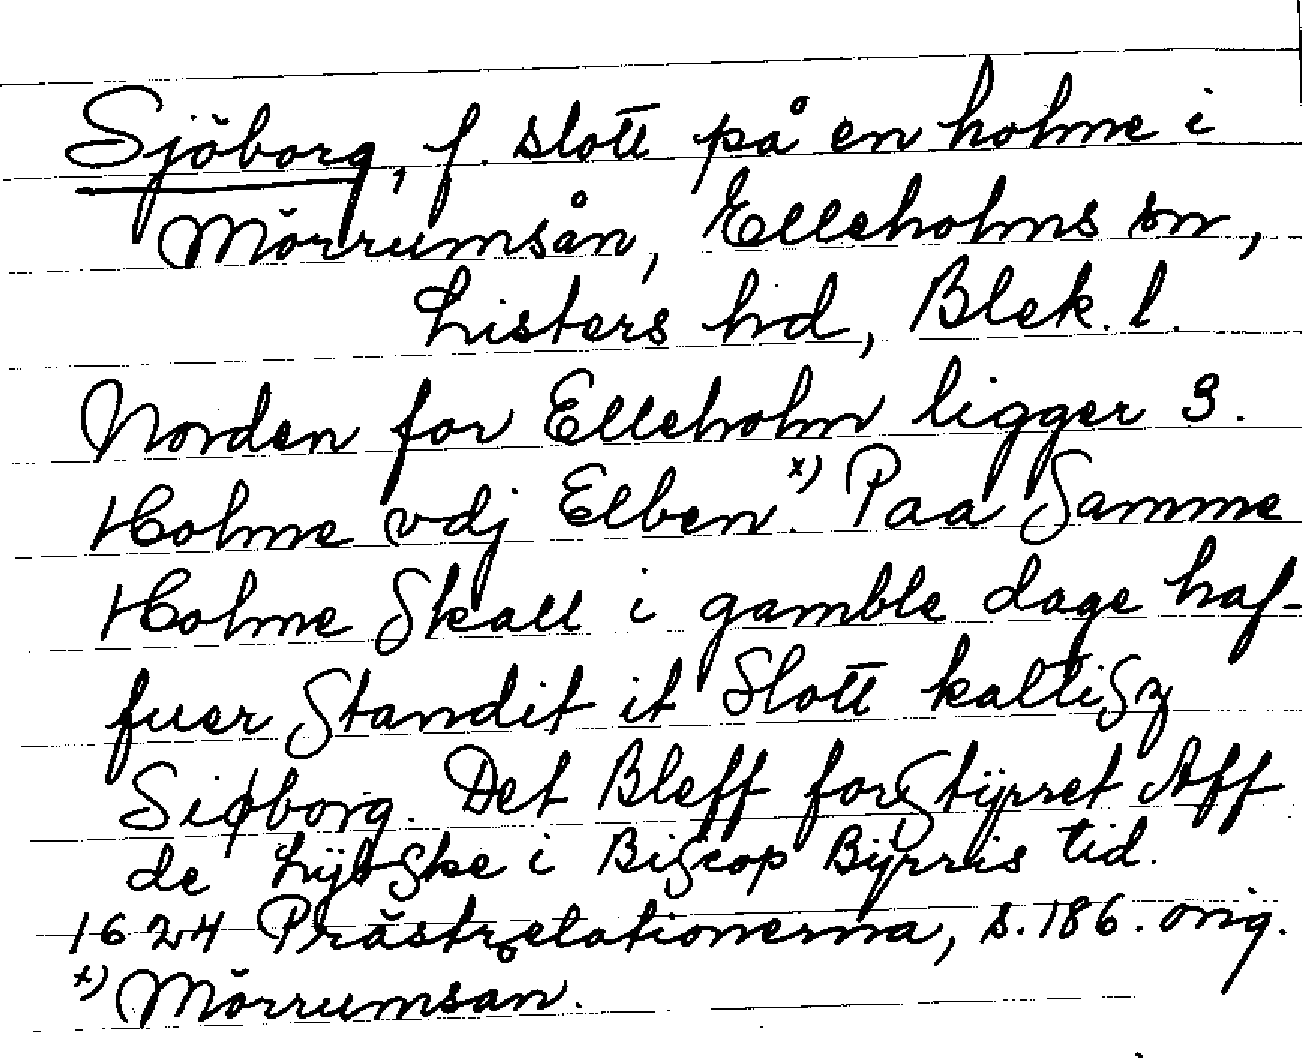 Sjöborg, f. slott på en holme i
Mörrumsån, Elleholms sn,
Listers hd, Blek. l.
Norden for Elleholm ligger 3.
Holme vdj Elben.x) Paa Samme
Holme Skall i gamble dage haf-
fuer Standit it Slott kalliSz
Siøborg. Det Bleff forStÿrret Aff
de LÿbSke i BiScop Bÿrris tid.
1624 Prästrelationerna, s. 186. orig.
x) Mörrumsån.